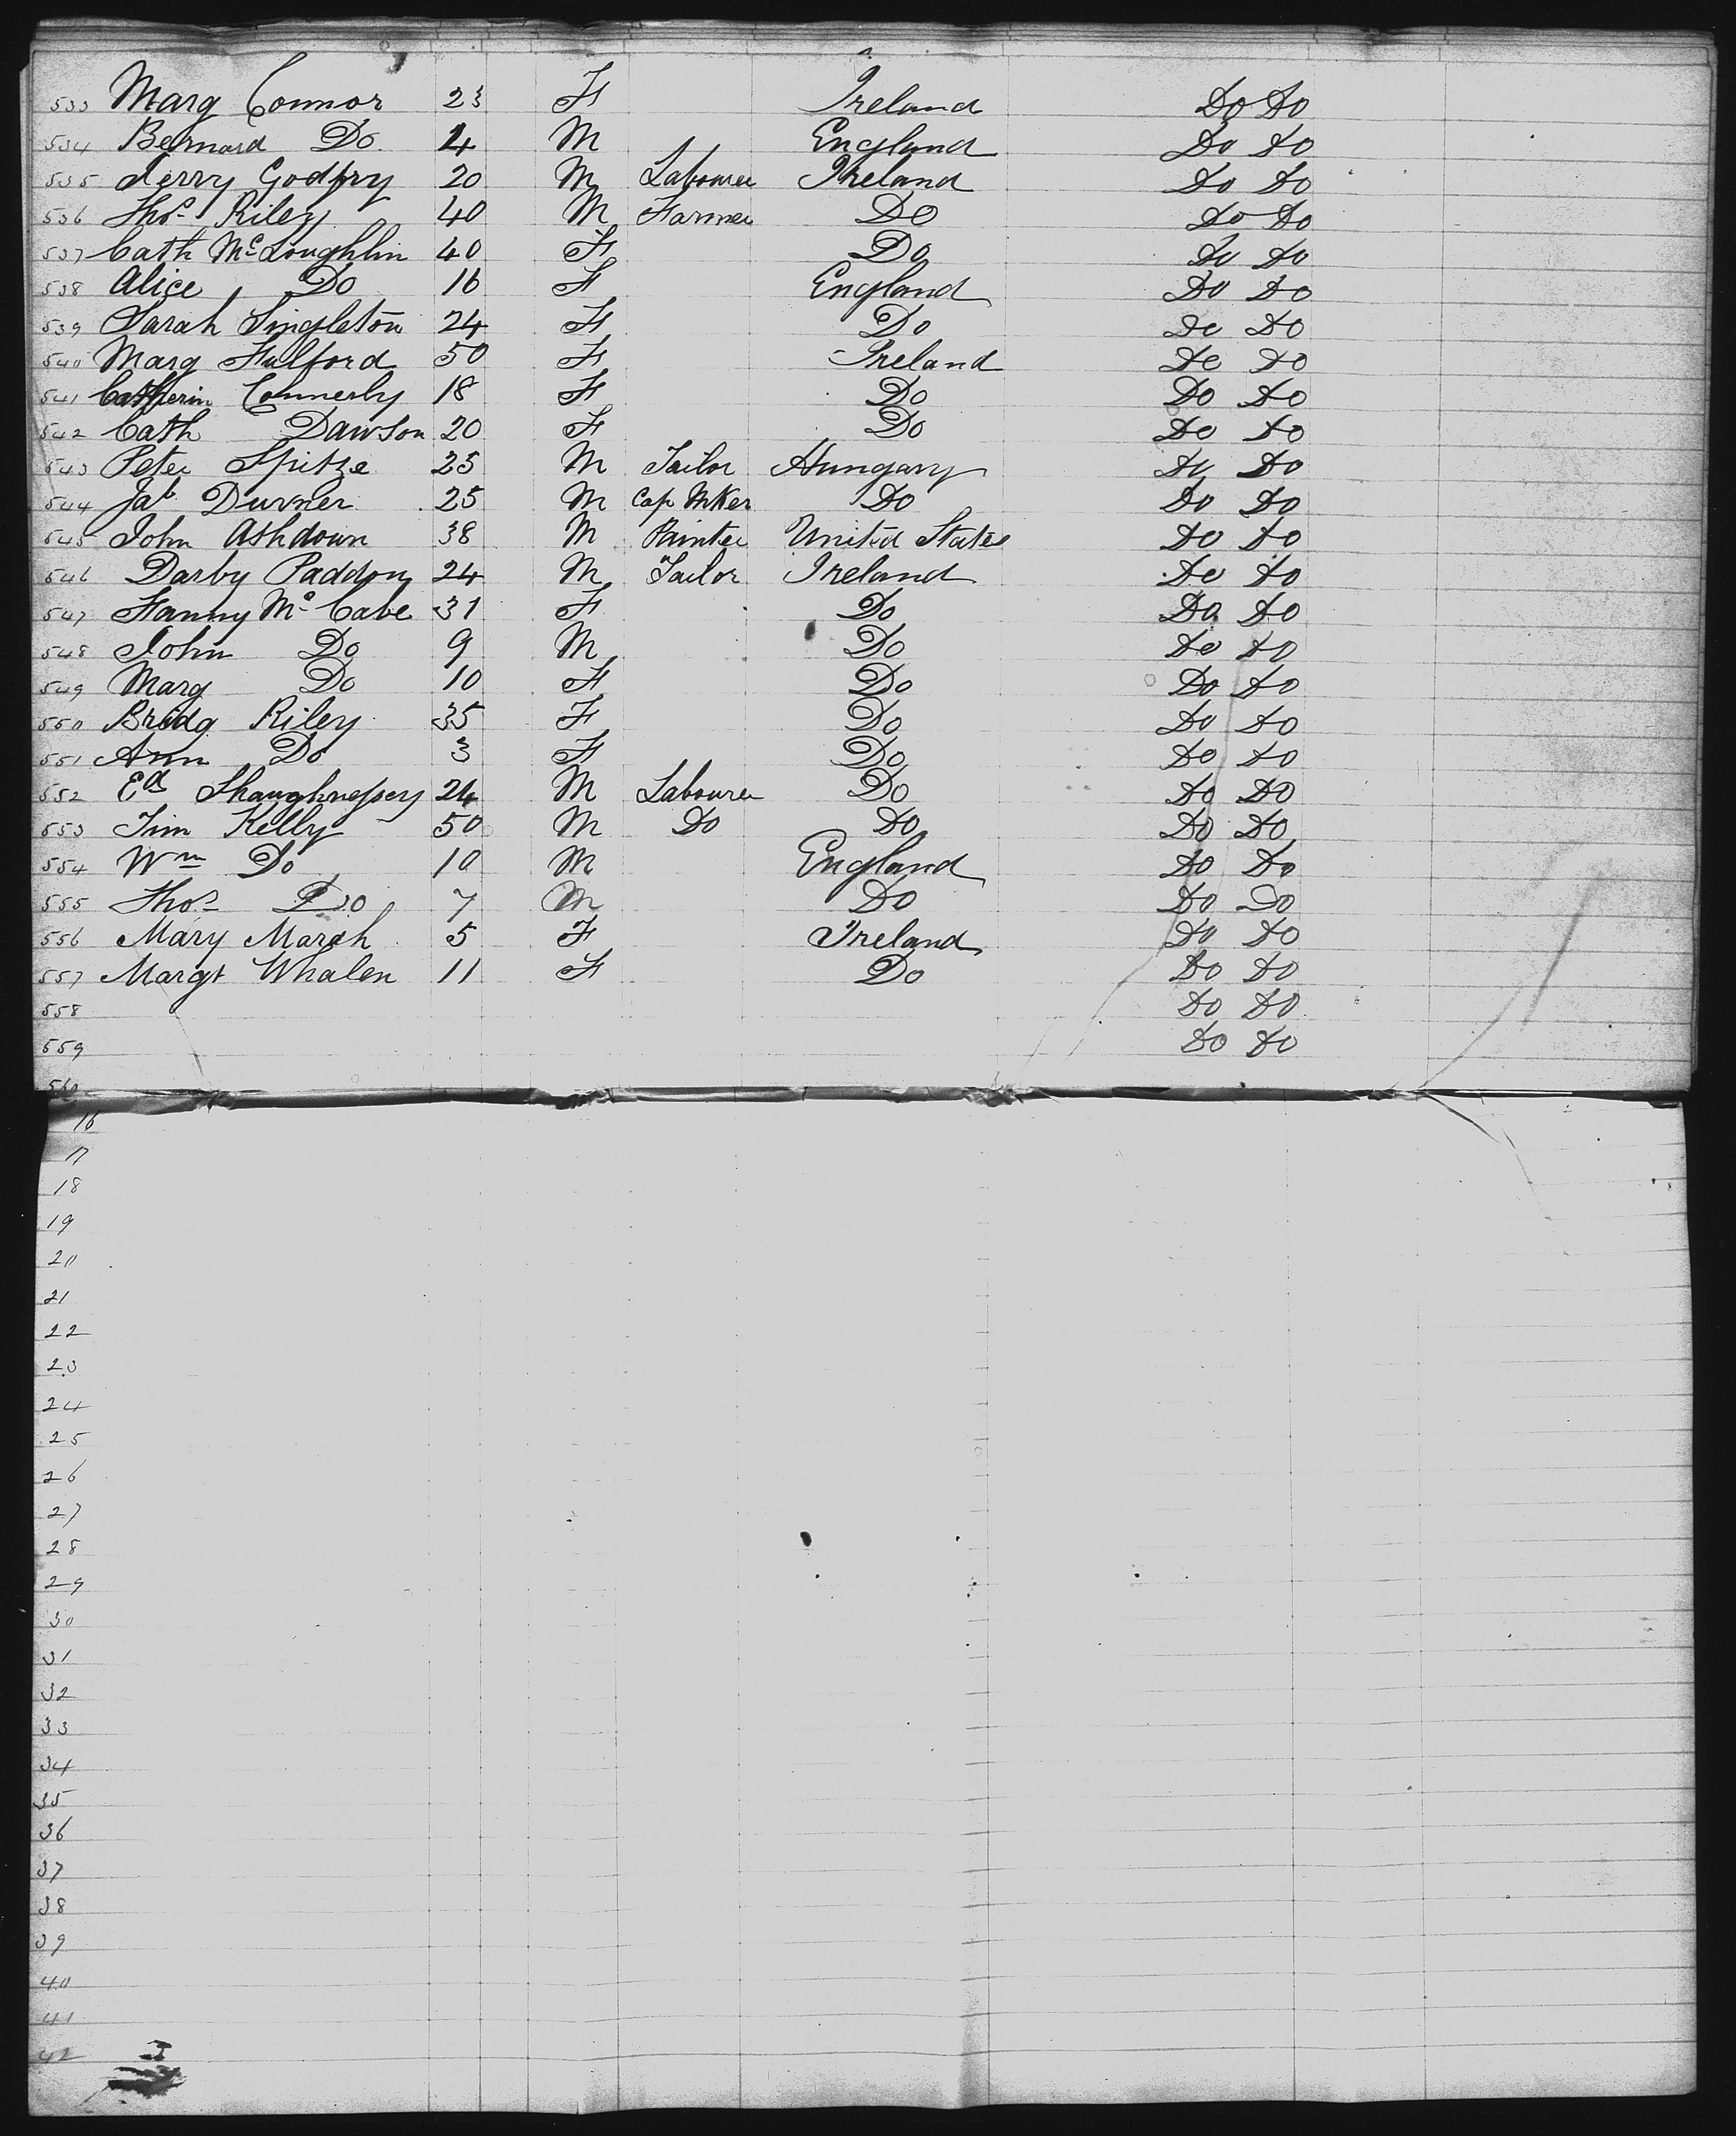 533 Marg Connor 23 F Ireland Do Do
534 Bernard Do 4 M England Do Do
535 Jerry Godfry 20 M Labourer Ireland Do Do
536 Thos Riley 40 M Farmer Do Do Do
537 Cath McLoughlin 40 F Do Do Do
538 Alice Do 16 F England Do Do
539 Sarah Singleton 24 F Do Do Do
540 Marg Fulford 50 F Ireland Do Do
541 Catherin Connerly 18 F Do Do Do
542 Cath Dawson 20 F Do Do Do
543 Peter Spitze 25 M Tailor Hungary Do Do
544 Jab Durner 25 M Cap Mker Do Do Do
545 John Ashdown 38 M Painter United States Do Do
546 Darby Paddon 24 M Tailor Ireland Do Do
547 Fanny Mc Cabe 31 F Do Do Do
548 John Do 9 M Do Do Do
549 Marg Do 10 F Do Do Do
550 Bridg Riley 35 F Do Do Do
551 Ann Do 3 F Do Do Do
552 Ed Shaughnessy 24 M Labourer Do Do Do
553 Tim Kelly 50 M Do Do Do Do
554 Wm Do 10 M England Do Do
555 Thos Do 7 M Do Do Do
556 Mary March 5 F Ireland Do Do
557 Margt Whalen 11 F Do Do Do
558 Do Do
559 Do Do
560
16
17
18
19
20
21
22
23
24
25
26
27
28
29
30
31
32
33
34
35
36
37
38
39
40
41
42